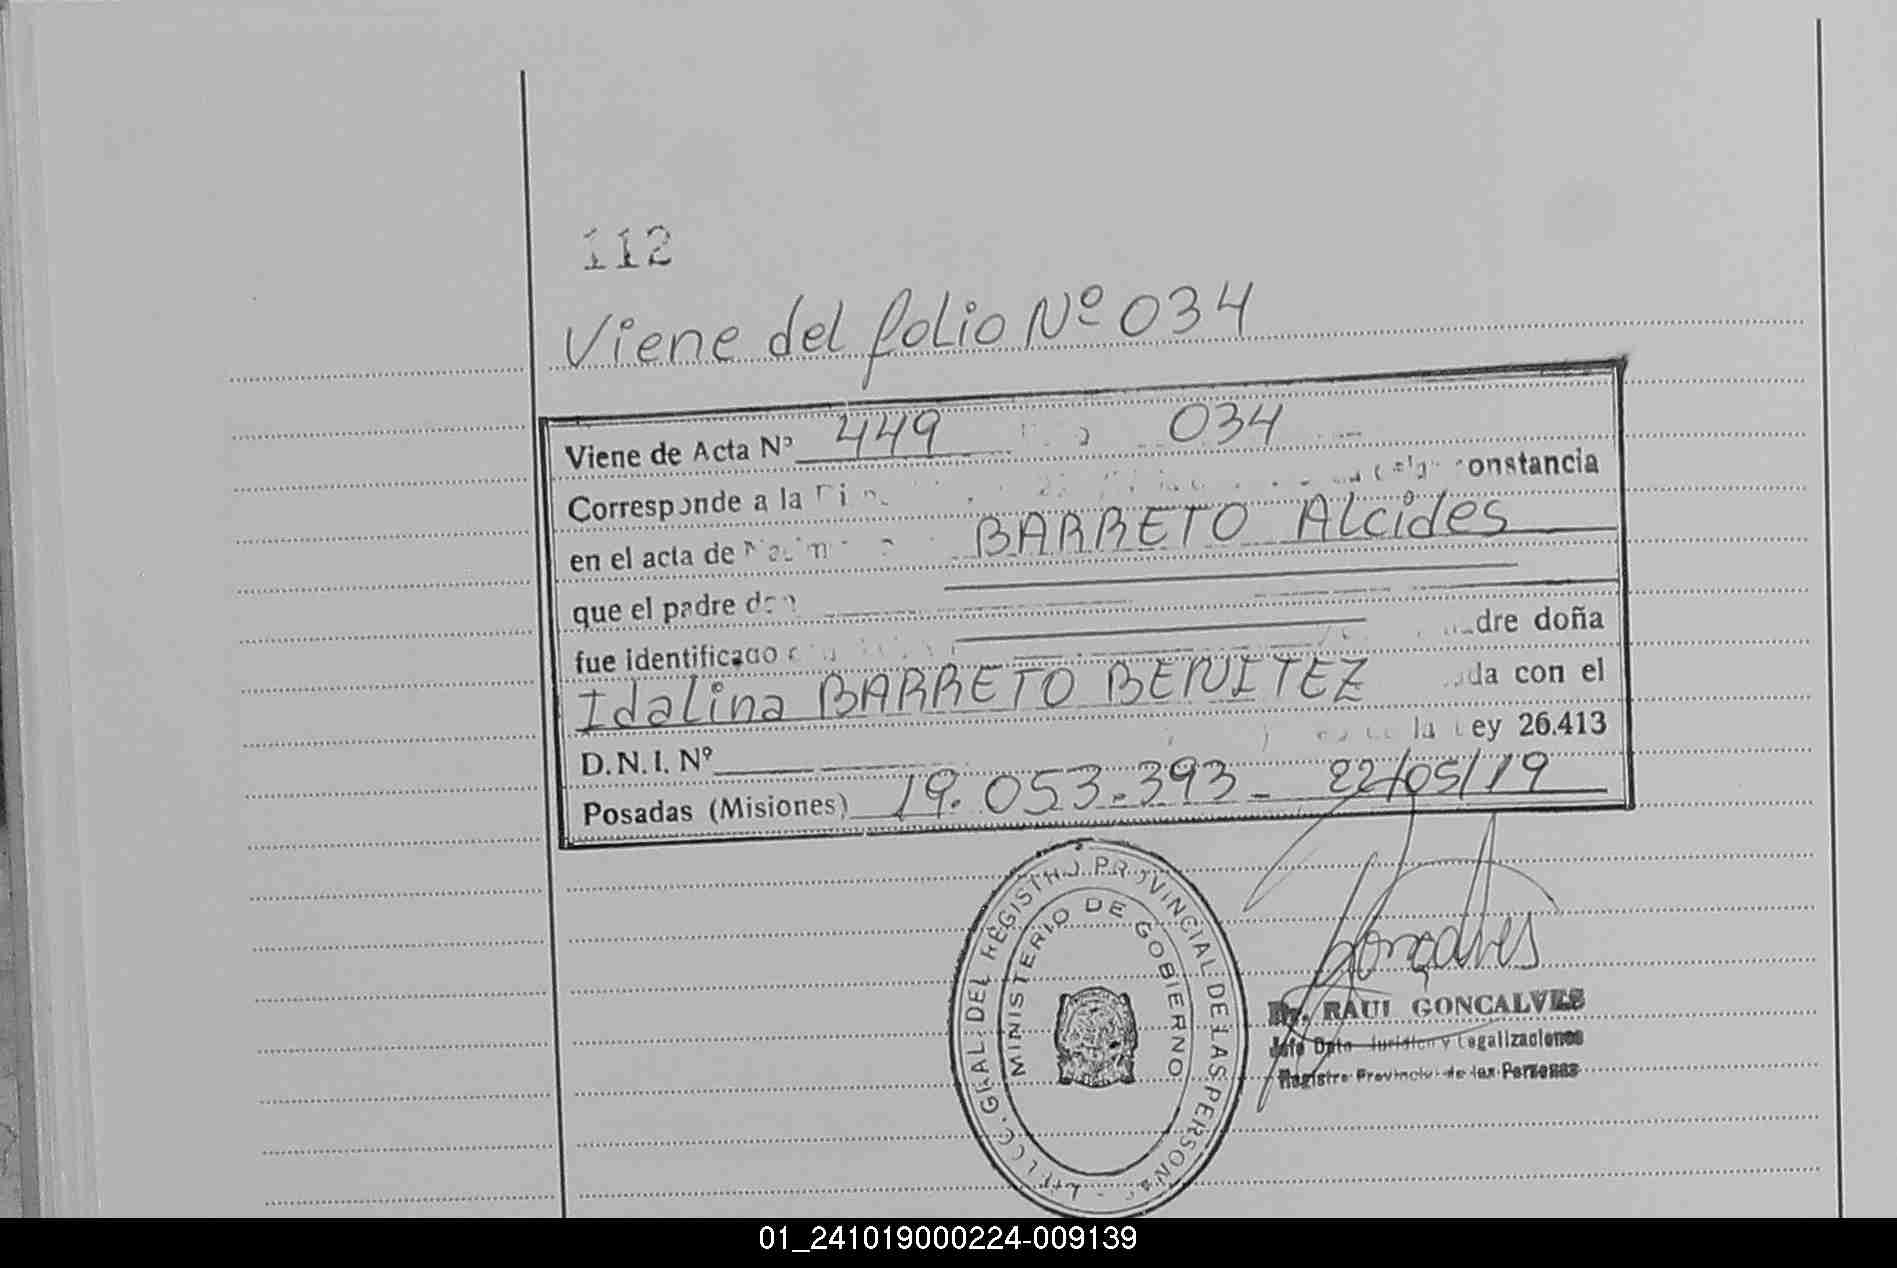 112
Viene del folio Nº 034
Viene de Acta Nº 449 034
Corresponde a la constancia
en el acta de BARRETO Alcides
que el padre don
fue identificado dre doña
Idalina BARRETO BENITEZ da con el
D.N.I. Nº la Ley 26.413
Posadas (Misiones) 19.053.393- 22/05/19
GRAL. DEL REGISTRO PROVINCIAL DE LAS PERSONAS
MINISTERIO DE GOBIERNO
Gonçalves
Dr. RAUL GONCALVES
Jefe Dpto. Jurídico y Legalizaciones
Registro Provincial de las Personas
01_241019000224-009139